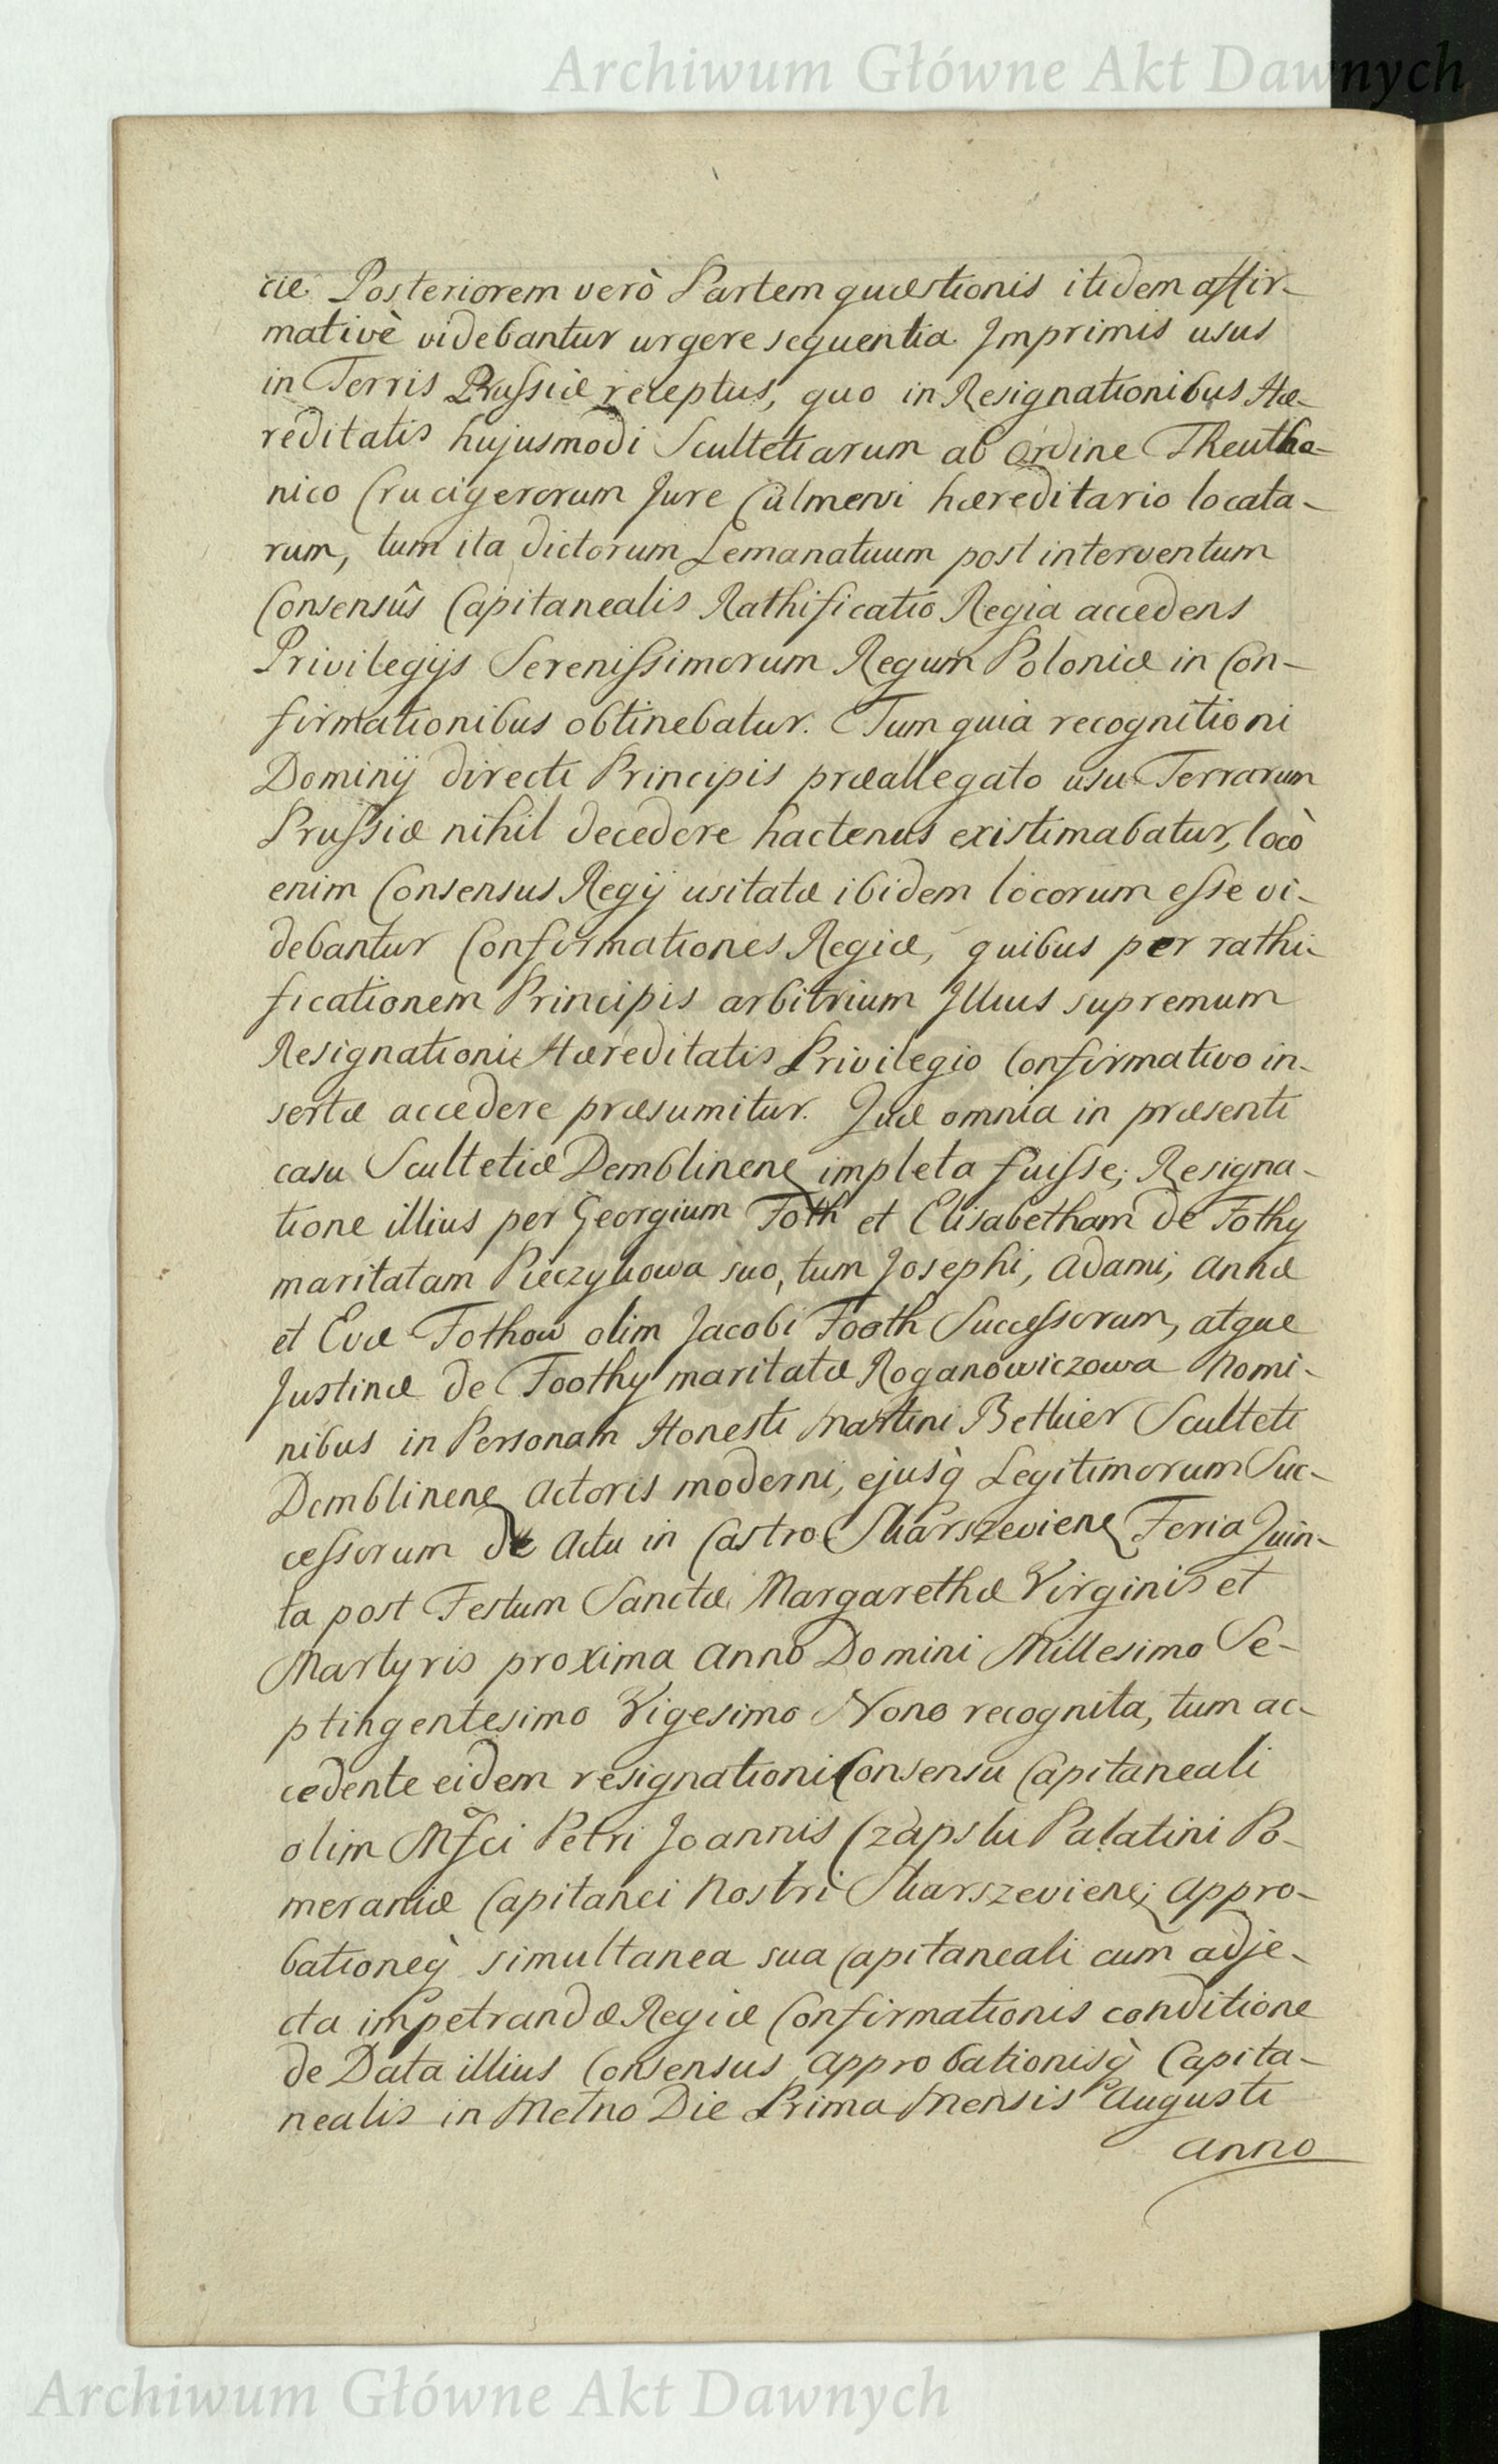 Archiwum Główne Akt Dawnych
ciæ. Posteriorem verò Partem quæstionis itidem affir-
mativè videbantur urgere sequentia. Imprimis usus
in Terris Prussiæ receptus, quo in Resignationibus Hæ-
reditatis hujusmodi Scultetiarum ab Ordine Theutho-
nico Crucigerorum Jure Culmensi hæreditario locata-
rum, tum ita dictorum Lemanatuum post interventum
Consensûs Capitanealis Rathificatio Regia accedens
Privilegijs Serenissimorum Regum Poloniæ in Con-
firmationibus obtinebatur. Tum quia recognitioni
Dominij directi Principis præallegato usu Terrarum
Prussiæ nihil decedere hactenus existimabatur, locò
enim Consensus Regij usitatæ ibidem locorum esse vi-
debantur Confirmationes Regiæ, quibus per rathi-
ficationem Principis arbitrium Illius supremum
Resignationi Hæreditatis Privilegio Confirmativo in-
sertæ accedere præsumitur. Quæ omnia in præsenti
casu Scultetiæ Demblinen impleta fuisse; Resigna-
tione illius per Georgium Toth et Elisabetham de Tothy
maritatam Pieczykowa suo, tum Josephi, Adami, Annæ
et Evæ Tothow olim Jacobi Tooth Successorum, atque
Justinæ de Toothy maritatæ Roganowiczowa Nomi-
nibus in Personam Honesti Martini Bethier Sculteti
Demblinen Actoris moderni, ejusq̀ Legitimorum Suc-
cessorum de Actu in Castro Skarszevien Feria Quin-
ta post Festum Sanctæ Margarethæ Virginis et
Martyris proxima Anno Domini Millesimo Se-
ptingentesimo Vigesimo Nono recognita, tum ac-
cedente eidem resignationi Consensu Capitaneali
olim Mfci Petri Joannis Czapski Palatini Po-
meraniæ Capitanei Nostri Skarszevien; Appro-
bationeq̀ simultanea sua Capitaneali cum adje-
cta impetrandæ Regiæ Confirmationis conditione
de Data illius Consensus Approbationisq̀ Capita-
nealis in Metno Die Prima Mensis Augusti
Anno
Archiwum Główne Akt Dawnych